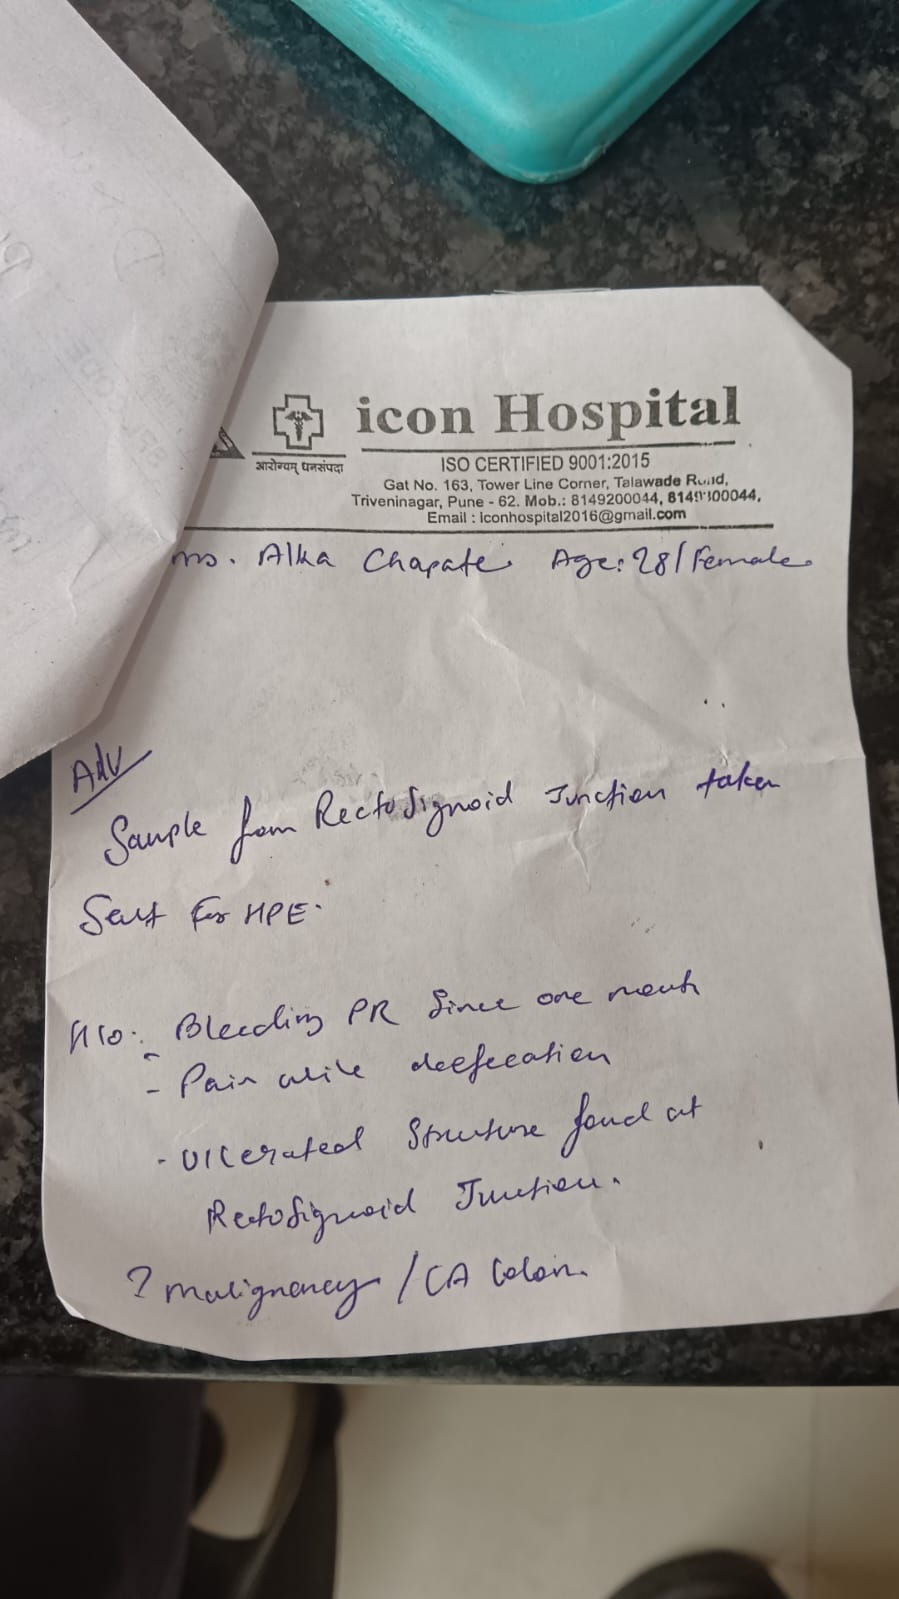 icon Hospital
आरोग्यम् धनसंपदा
ISO CERTIFIED 9001:2015
Gat No. 163, Tower Line Corner, Talawade Road,
Triveninagar, Pune - 62. Mob.: 8149200044,
Email : iconhospital2016@gmail.com
Alka Chapate Age: 28/Female
Adv
Sample from RectoSigmoid Junction taken
Sent For HPE.
H/o: Bleeding PR Since one month
- Pain while deefecation
- Ulcerated Structure found at
RectoSigmoid Junction.
? Malignancy / CA Colon.